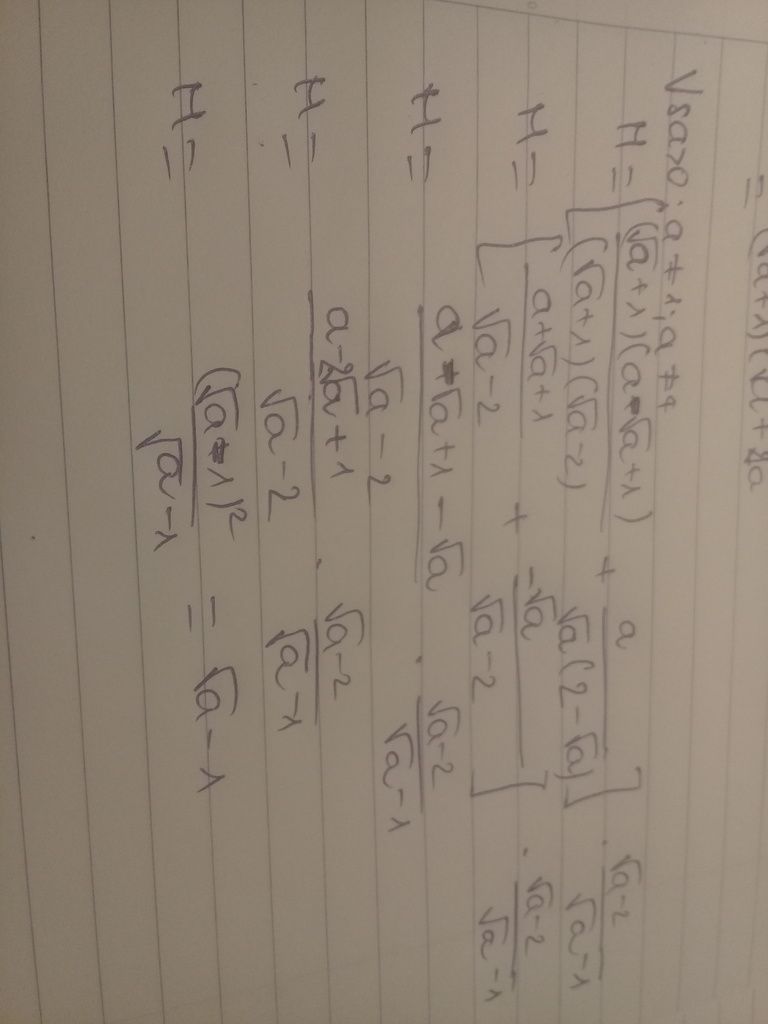 = (√a+1)(√a+
Với a>0; a≠1; a≠4
M = [ ((√a+1)(a-√a+1))/((√a+1)(√a-2)) + a/(√a(2-√a)) ] · (√a-2)/(√a-1)
M = [ (a+√a+1)/(√a-2) + (-√a)/(√a-2) ] · (√a-2)/(√a-1)
M = (a-√a+1-√a)/(√a-2) · (√a-2)/(√a-1)
M = (a-2√a+1)/(√a-2) · (√a-2)/(√a-1)
M = (√a-1)²/(√a-1) = √a-1